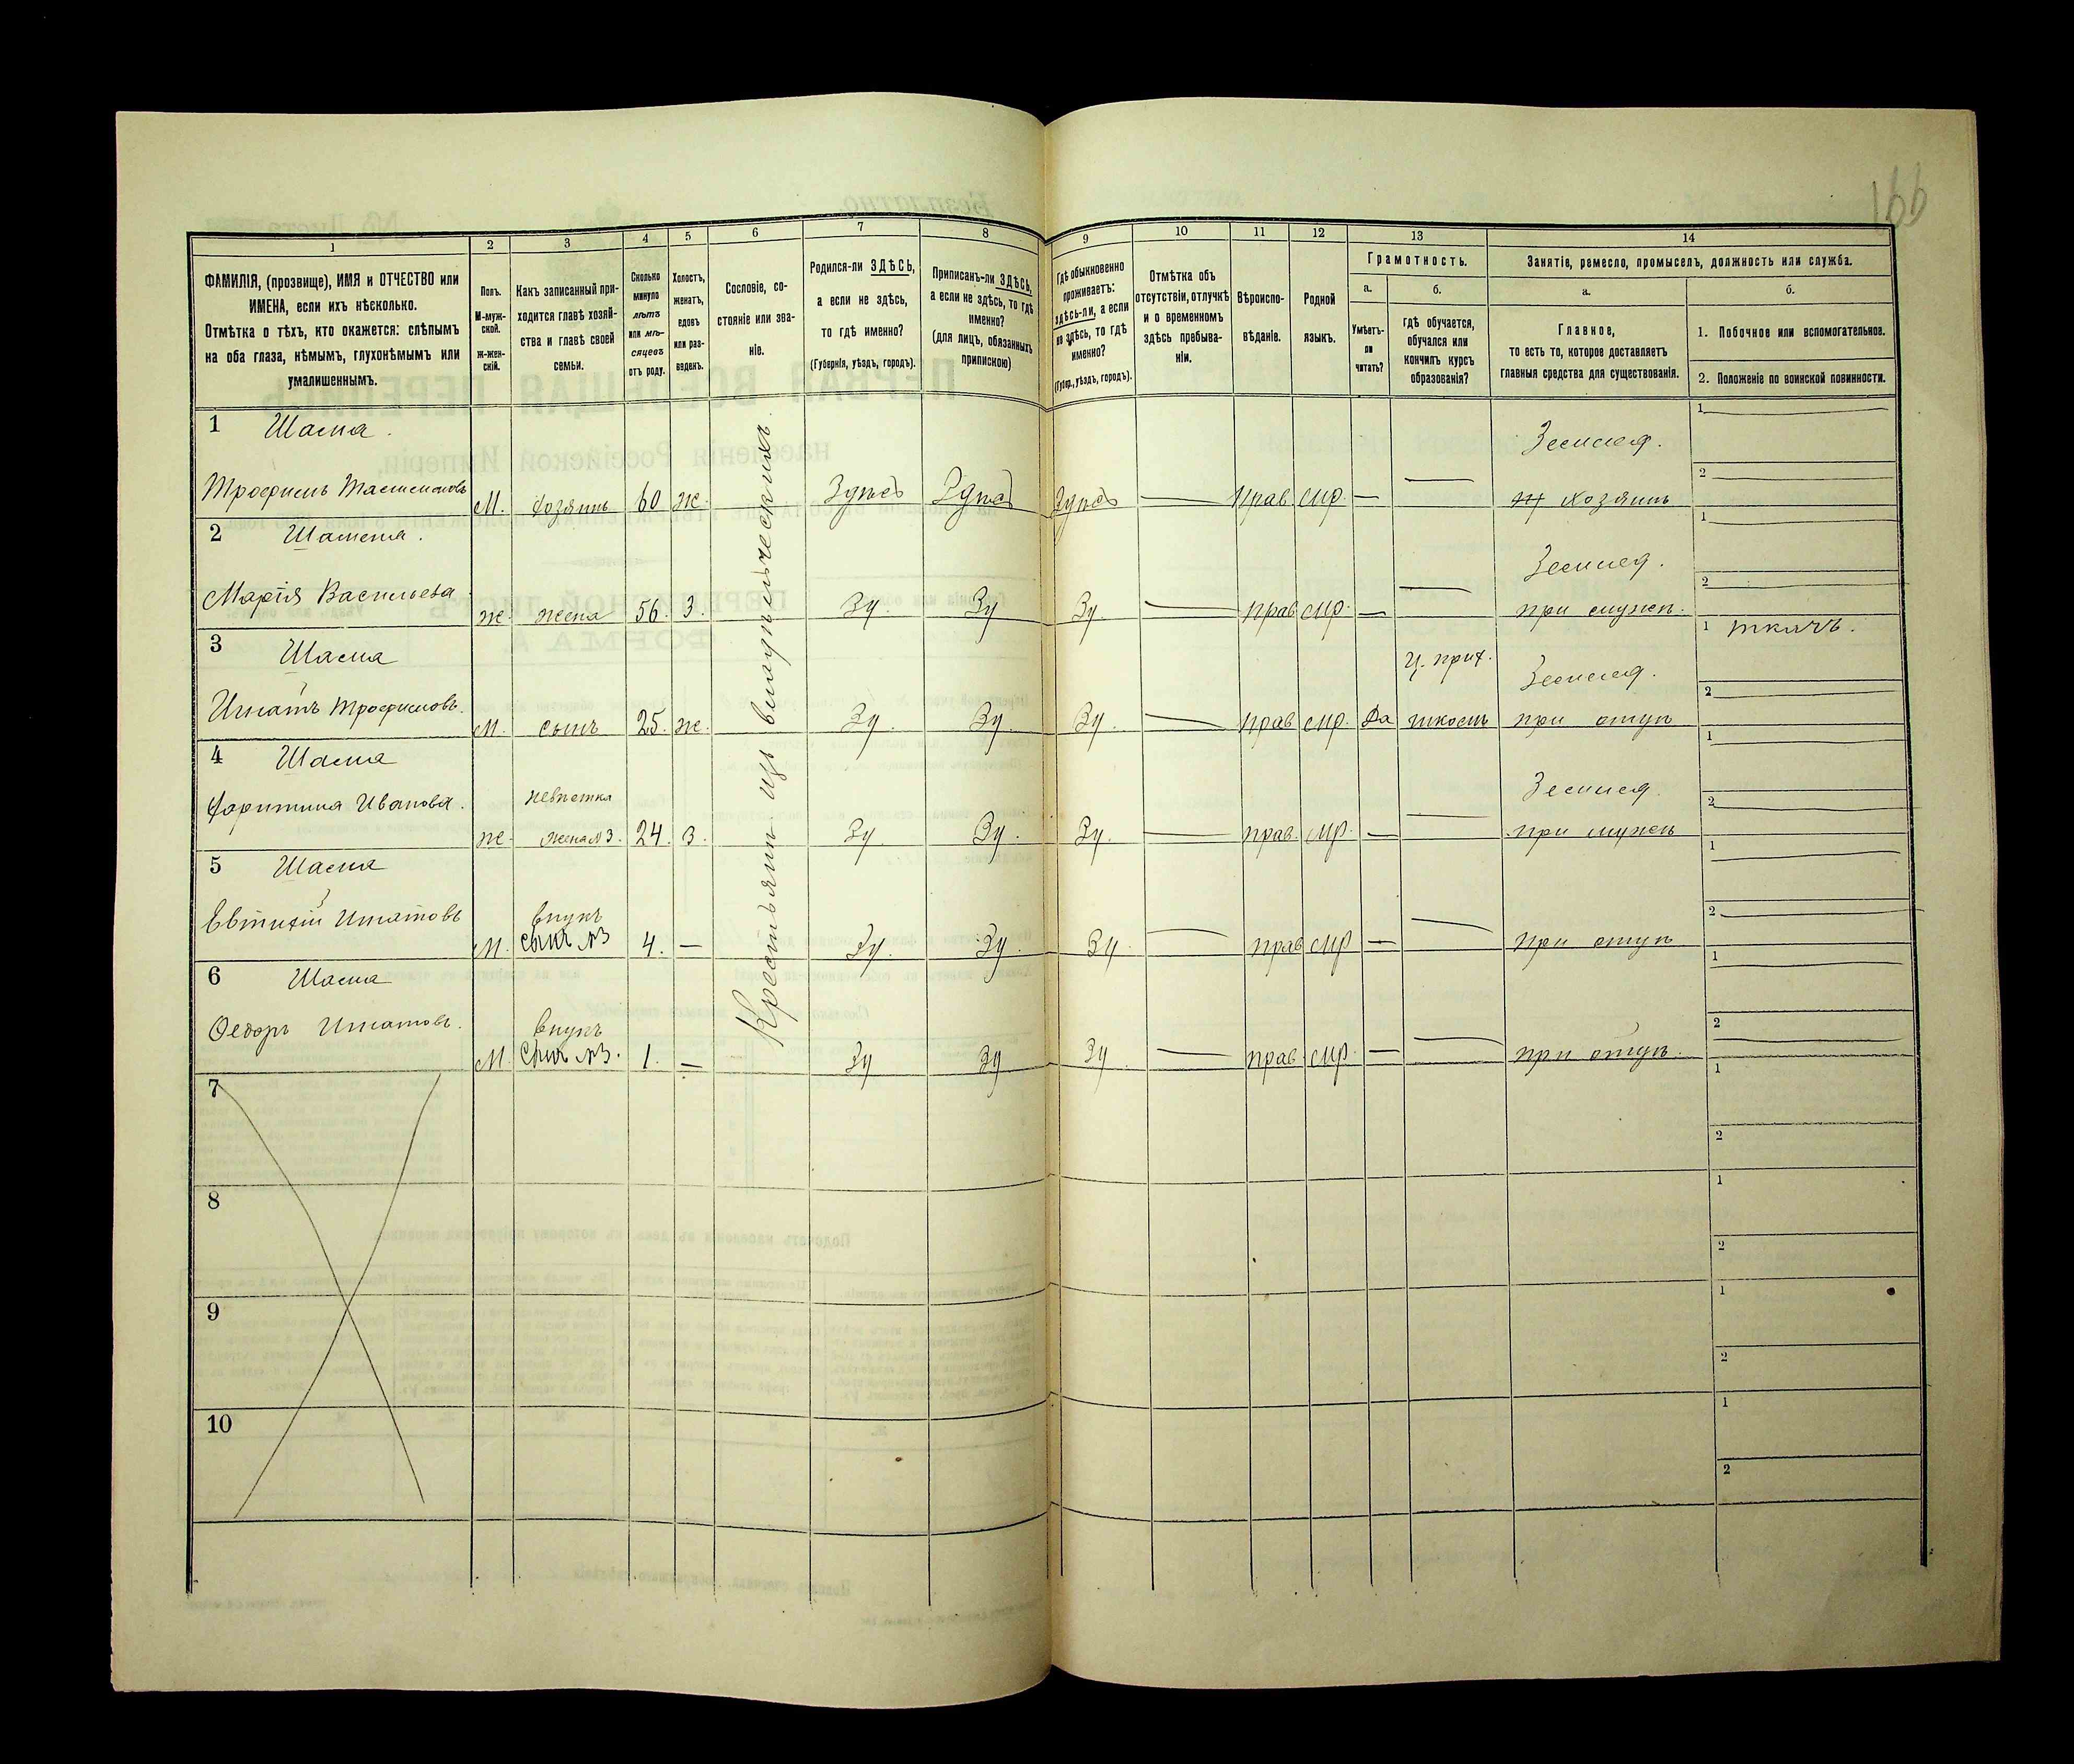 166
1
2
3
4
5
6
7
8
9
10
11
12
13
14
ФАМИЛІЯ, (прозвище), ИМЯ и ОТЧЕСТВО или
ИМЕНА, если ихъ нѣсколько.
Отмѣтка о тѣхъ, кто окажется: слѣпымъ
на оба глаза, нѣмымъ, глухонѣмымъ или
умалишеннымъ.
Полъ.
М-муж-
ской.
ж-жен-
скій.
Какъ записанный при-
ходится главѣ хозяй-
ства и главѣ своей
семьи.
Сколько
минуло
лѣтъ
или мѣ-
сяцевъ
отъ роду.
Холостъ,
женатъ,
вдовъ
или раз-
веденъ.
Сословіе, со-
стояніе или зва-
ніе.
Родился-ли ЗДѢСЬ,
а если не здѣсь,
то гдѣ именно?
(Губернія, уѣздъ, городъ).
Приписанъ-ли ЗДѢСЬ,
а если не здѣсь, то гдѣ
именно?
(для лицъ, обязанныхъ
припискою)
Гдѣ обыкновенно
проживаетъ:
здѣсь-ли, а если
не здѣсь, то гдѣ
именно?
(Губер., уѣздъ, городъ).
Отмѣтка объ
отсутствіи, отлучкѣ
и о временномъ
здѣсь пребыва-
ніи.
Вѣроиспо-
вѣданіе.
Родной
языкъ.
Грамотность.
а.
Умѣетъ-
ли
читать?
б.
гдѣ обучается,
обучался или
кончилъ курсъ
образованія?
Занятіе, ремесло, промыселъ, должность или служба.
а.
Главное,
то есть то, которое доставляетъ
главныя средства для существованія.
б.
1. Побочное или вспомогательное.
2. Положеніе по воинской повинности.
Крестьянъ изъ владѣльческихъ
1 Шаена.
Трофимъ
М. хозяинъ 60 ж. Здѣсь Здѣсь Здѣсь — прав. мр. — —
Землед.
хозяинъ
1
2
2
Марія Васильева
ж. жена 56. З. Зд. Зд Зд. — прав. мр. — —
Землед.
при мужѣ.
1
2
3 Шаена
Игнатъ Трофимовъ.
М. сынъ 25. ж. Зд. Зд. Зд. — прав мр. Да
Ц. прих.
школѣ
Землед.
при отцѣ
1 ткачъ.
2
4 Шаена
Харитина Иванова.
невѣстка
ж. жена №3. 24. З. Зд. Зд. Зд. — прав. мр. — —
Землед.
при мужѣ
1
2
5 Шаена
Евтихій Игнатовъ
внукъ
М. сынъ №3 4. — Зд. Зд. Зд. — прав мр — —
при отцѣ
1
2
6 Шаена
Ѳедоръ Игнатовъ.
внукъ
М. сынъ №3. 1. — Зд Зд Зд — прав. мр. — —
при отцѣ.
1
2
7
1
2
8
1
2
9
1
2
10
1
2